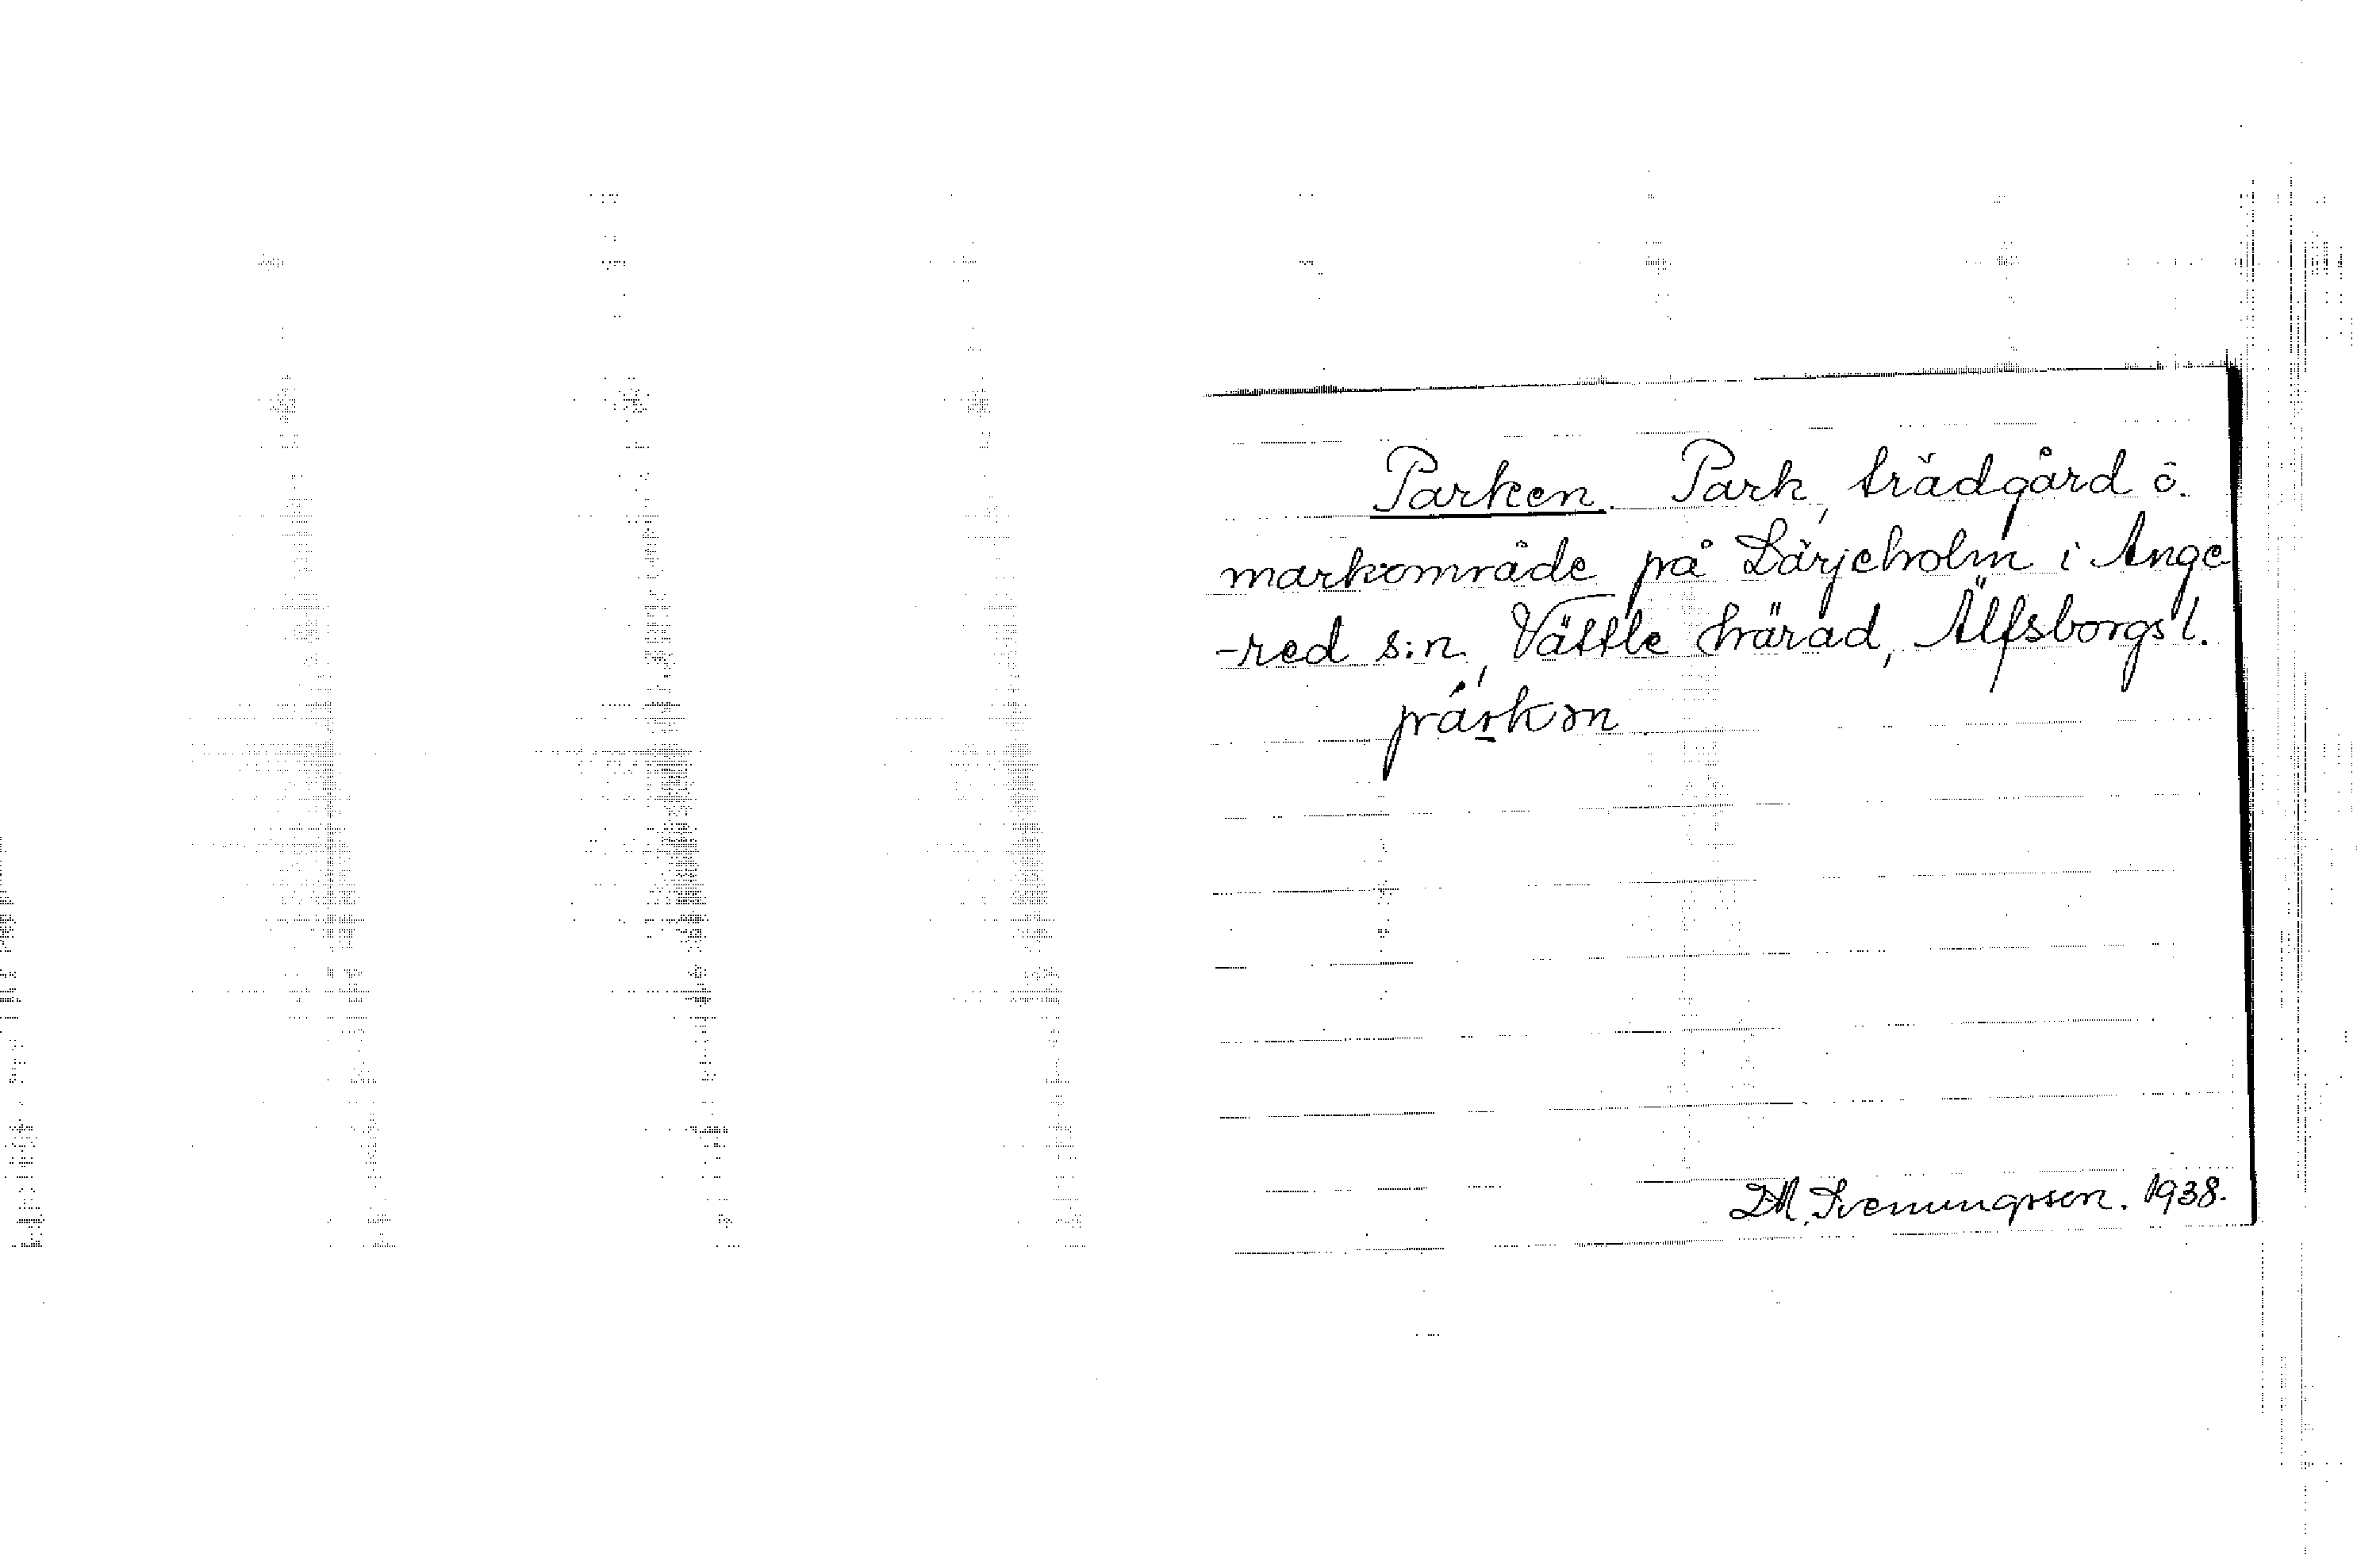 Parken. Park, trädgård o.
markområde på Lärjeholm i Ange
-red s:n, Vättle härad, Älfsborgs l.
pár̲kən
D.M. Svenungsson. 1938.